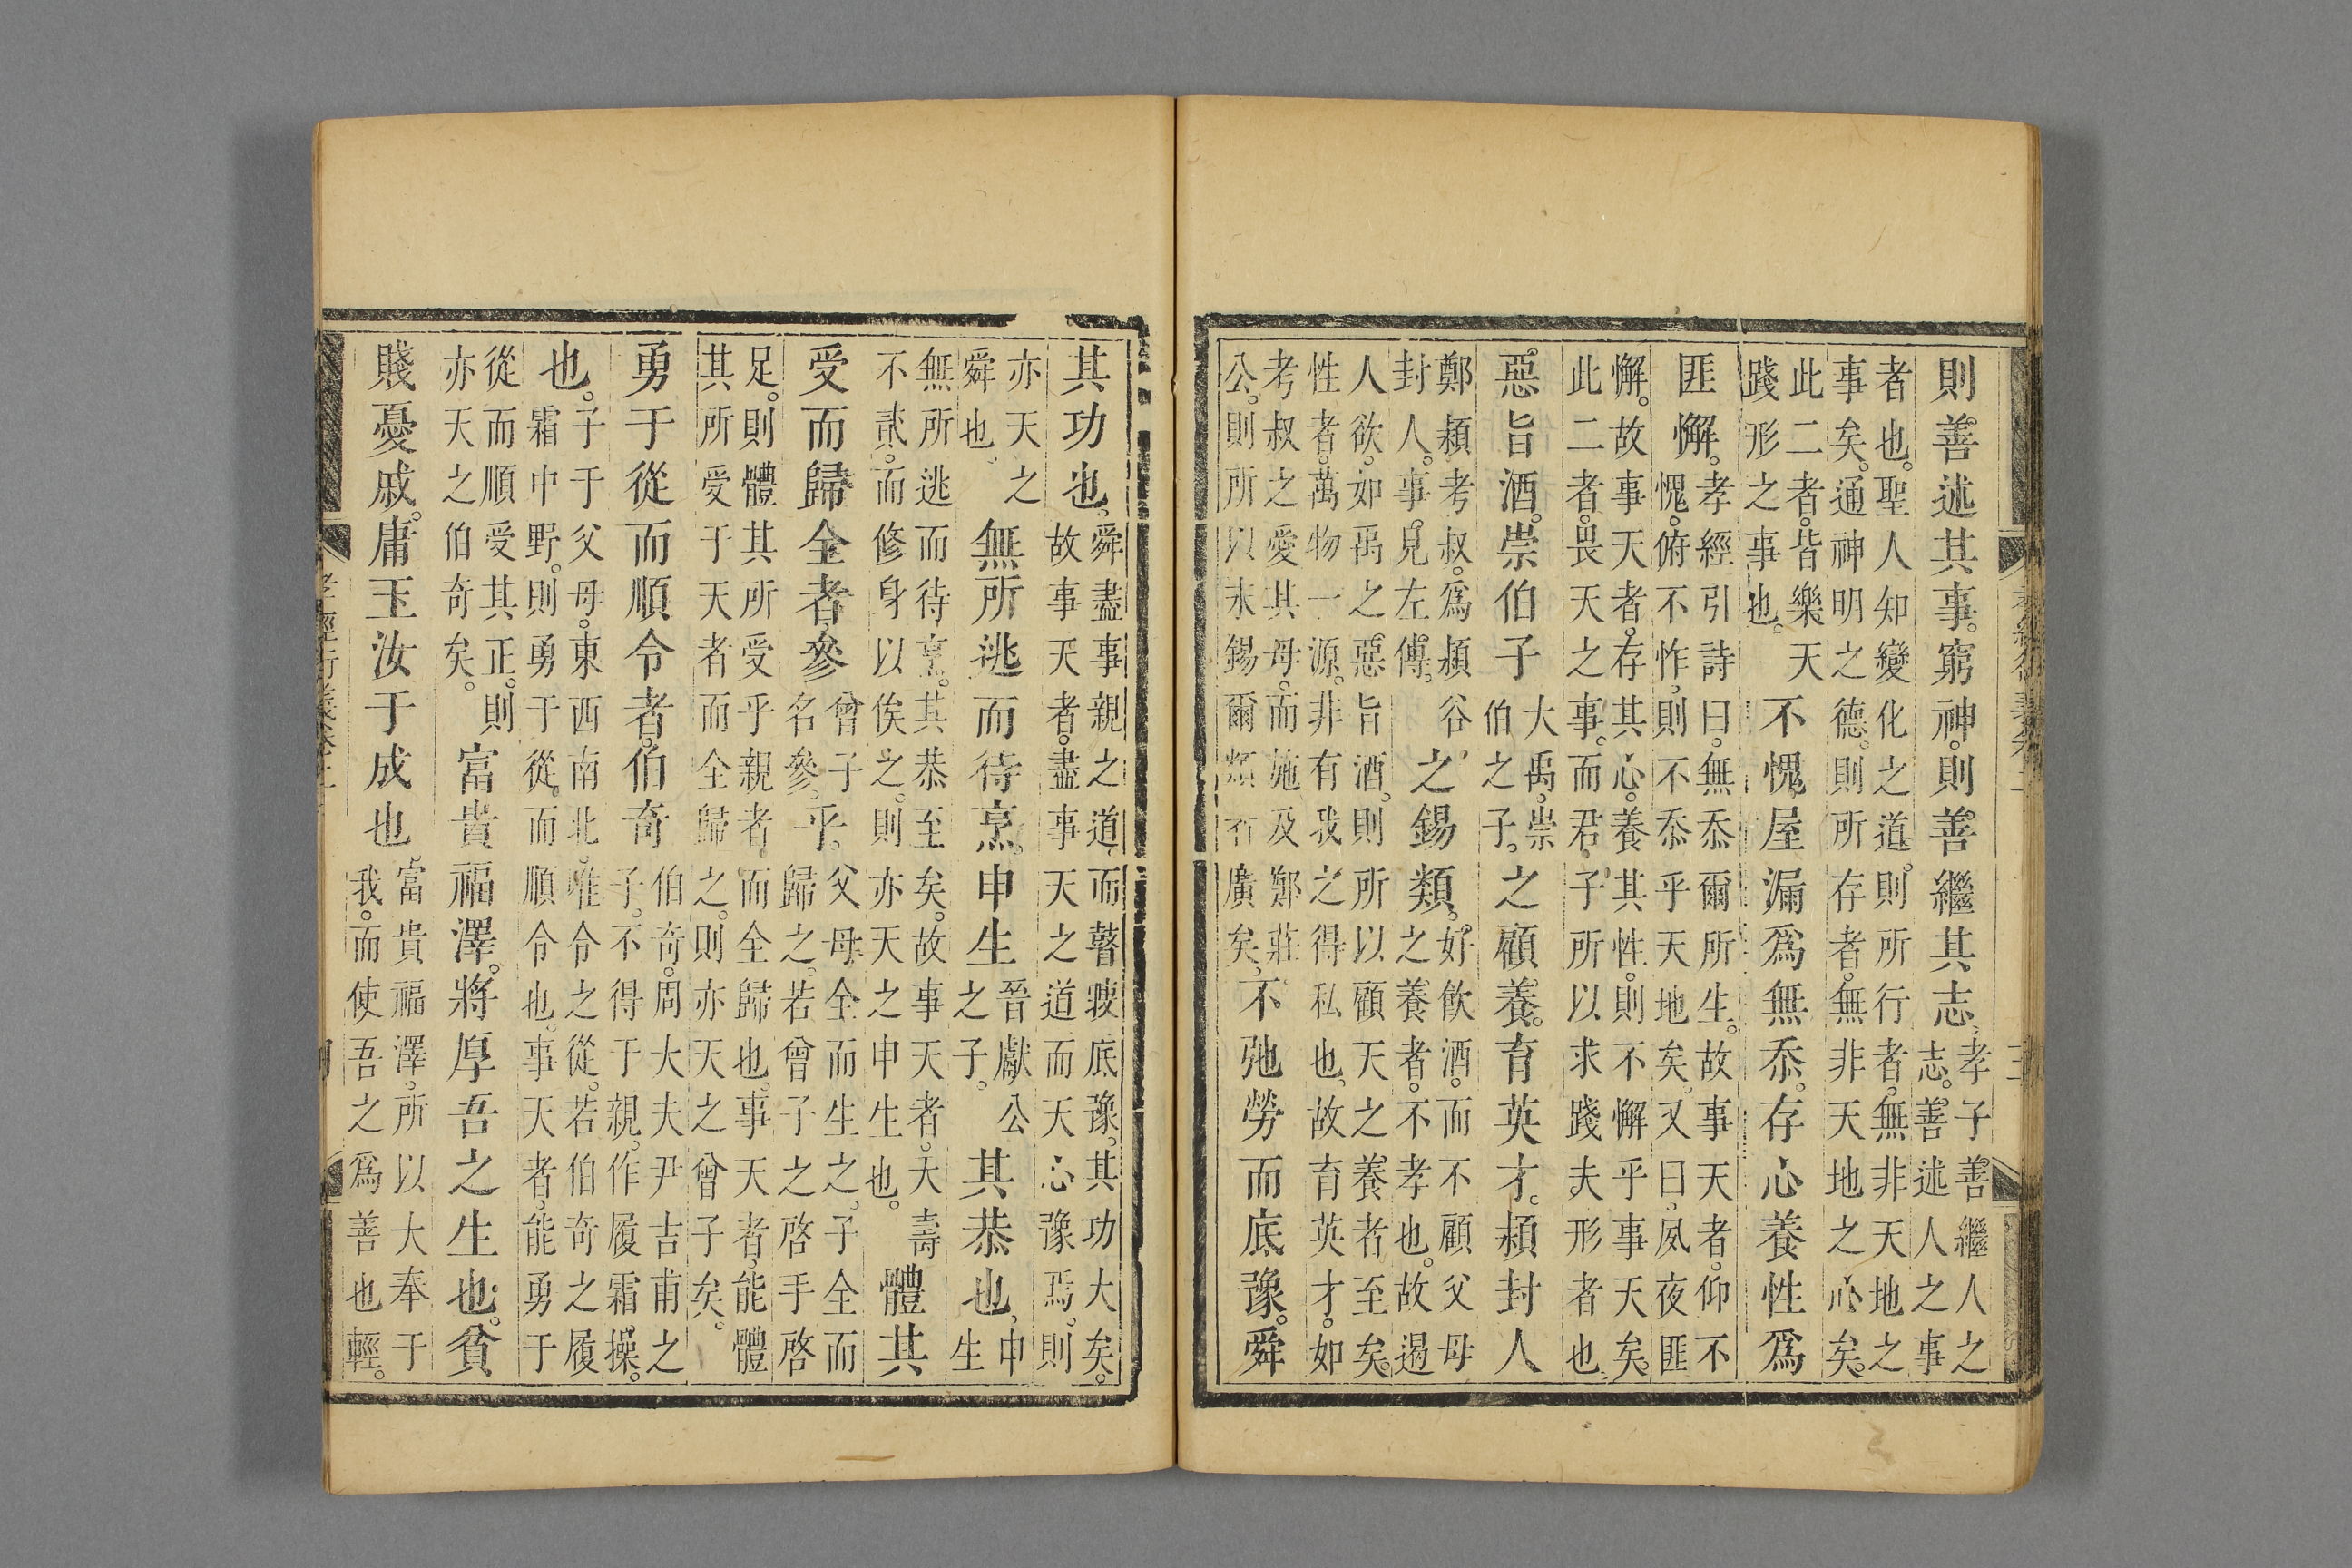 則善述其事。窮神。則善繼其志。孝子善繼人之
志。善述人之事
者也。聖人知變化之道。則所行者。無非天地之
事矣。通神明之德。則所存者。無非天地之心矣。
此二者。皆樂天
踐形之事也。
不愧屋漏爲無忝。存心養性爲
匪懈。
孝經引詩曰。無忝爾所生。故事天者。仰不
愧。俯不怍。則不忝乎天地矣。又曰。夙夜匪
懈。故事天者。存其心。養其性。則不懈乎事天矣。
此二者。畏天之事。而君子所以求踐夫形者也
惡旨酒。崇伯子
大禹。崇
伯之子。
之顧養。育英才。潁封人
鄭潁考叔。爲潁谷
封人。事見左傳。
之錫類。
好飲酒。而不顧父母
之養者。不孝也。故遏
人欲。如禹之惡旨酒。則所以顧天之養者至矣。
性者。萬物一源。非有我之得私也。故育英才。如
考叔之愛其母。而施及鄭莊
公。則所以永錫爾類者廣矣。
不弛勞而底豫。舜
其功也。
舜盡事親之道。而瞽瞍底豫。其功大矣。
故事天者。盡事天之道。而天心豫焉。則
亦天之
舜也。
無所逃而待烹。申生
晉獻公
之子。
其恭也。
申
生
無所逃而待烹。其恭至矣。故事天者。夭壽
不貳。而修身以俟之。則亦天之申生也。
體其
受而歸全者。參
曾子
名參。
乎。
父母全而生之。子全而
歸之。若曾子之啓手啓
足。則體其所受乎親者。而全歸也。事天者。能體
其所受于天者。而全歸之。則亦天之曾子矣。
勇于從而順令者。伯奇
伯奇。周大夫尹吉甫之
子。不得于親。作履霜操。
也。
子于父母。東西南北。唯令之從。若伯奇之履
霜中野。則勇于從。而順令也。事天者。能勇于
從而順受其正。則
亦天之伯奇矣。
富貴福澤。將厚吾之生也。貧
賤憂戚。庸玉汝于成也。
富貴福澤。所以大奉于
我。而使吾之爲善也輕。